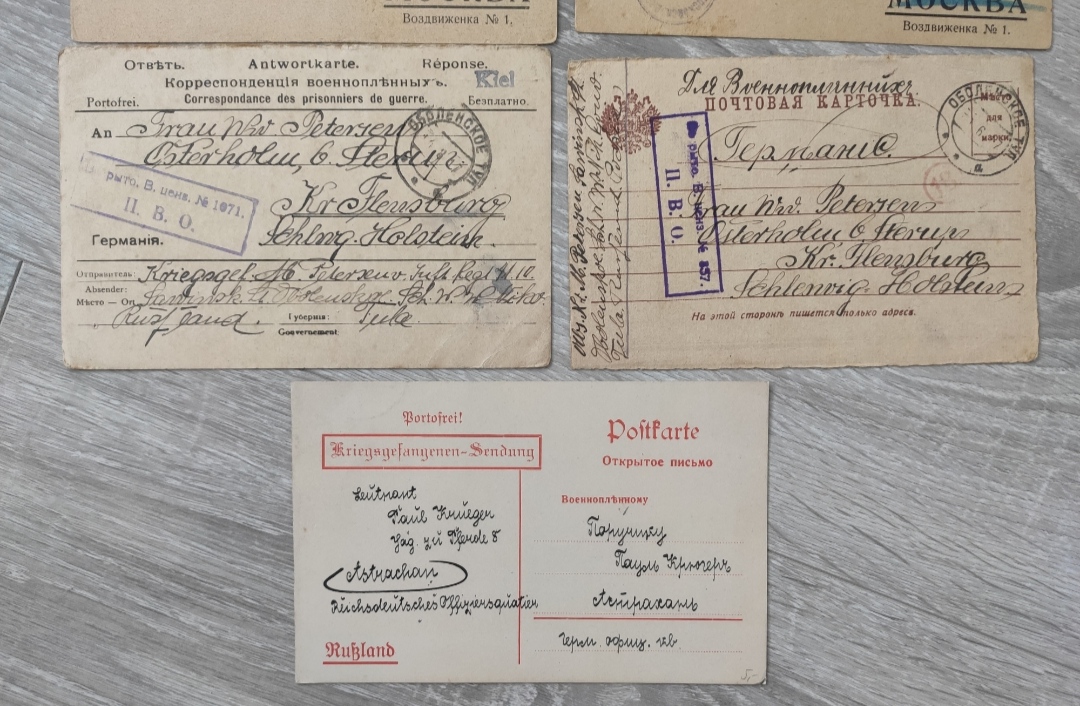 МОСКВА
Воздвиженка № 1.
МОСКВА
Воздвиженка № 1.
Отвѣтъ. Antwortkarte. Réponse.
Корреспонденція военноплѣнныхъ.
Kiel
Portofrei. Correspondance des prisonniers de guerre. Безплатно.
An Frau Wwe Petersen
Osterholm b. Sterup
Kr Flensburg
Германія. Schlwg. Holstein.
Отправитель: Kriegsgef. M. Petersen
Absender:
Мѣсто — Ort
Rußland. Губернія: Tula.
Gouvernement
рыто. В. ценз. № 1071.
П. В. О.
ОБОЛЕНСКОЕ ТУЛ
Для Военноплѣнныхъ
ПОЧТОВАЯ КАРТОЧКА.
Мѣсто
для
марки.
ОБОЛЕНСКОЕ ТУЛ
Германію.
Frau Wwe. Petersen
Osterholm b Sterup
Kr. Flensburg
Schleswig-Holstein
На этой сторонѣ пишется только адресъ.
рыто. В. ценз. № 857.
П. В. О.
Portofrei!
Kriegsgefangenen-Sendung
Leutnant
Paul Krueger
Jäg. zu Pferde 8
Astrachan
Reichsdeutsches Offiziersquartier
Rußland
Postkarte
Открытое письмо
Военноплѣнному
Поручику
Пауль Крюгеръ
Астрахань
Герм. офиц. кв
5,-